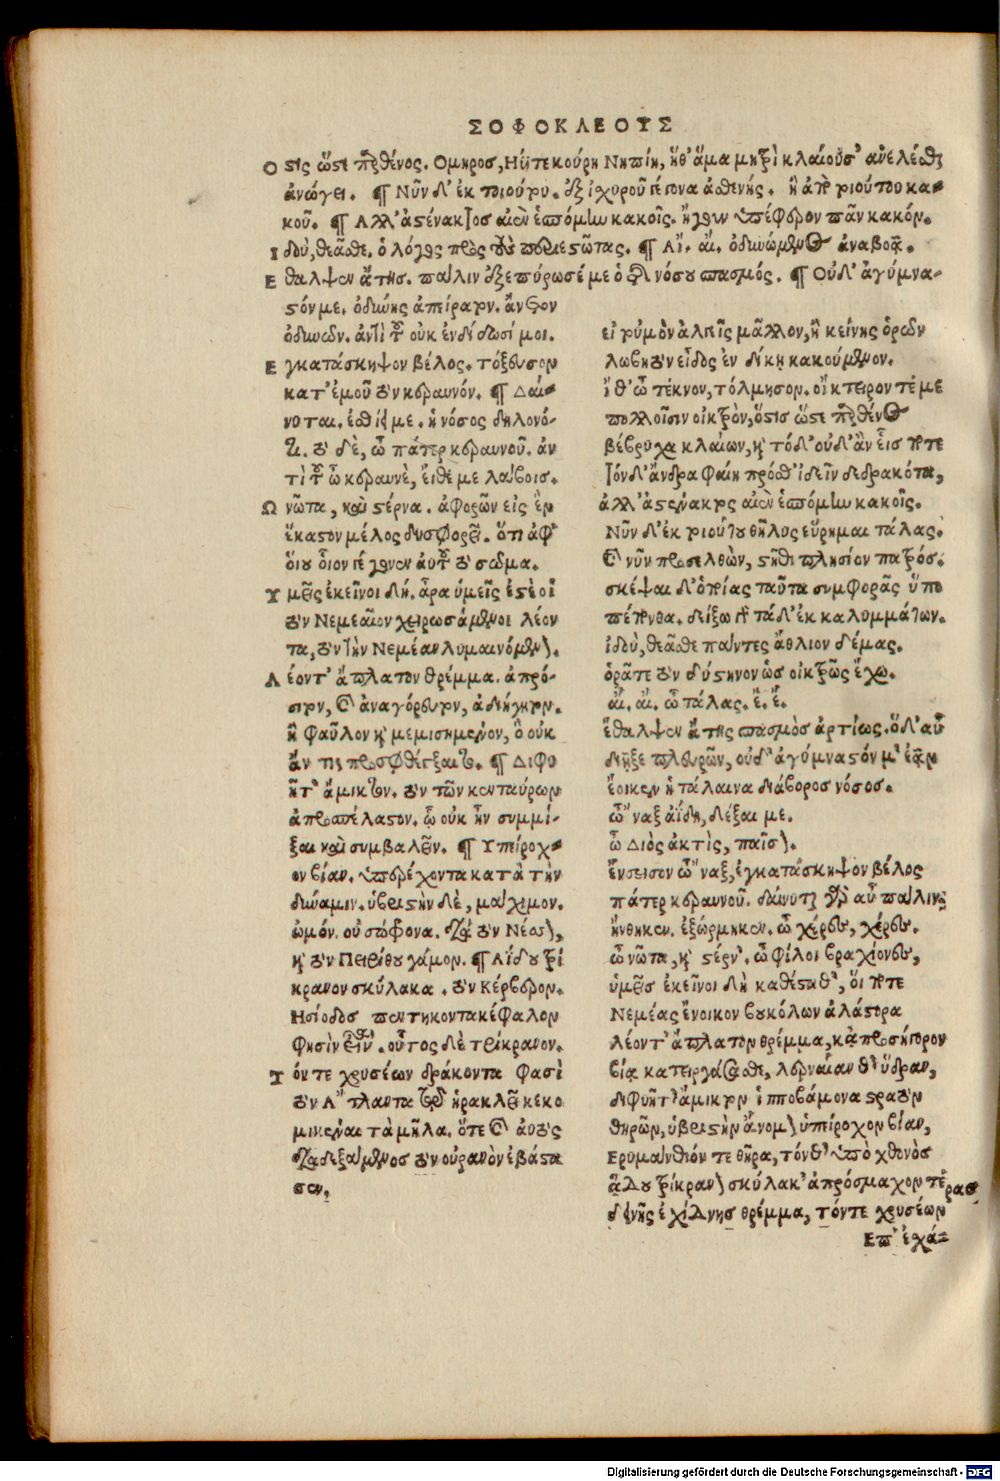 ΣΟΦΟΚΛΕΟΥΣ
Οστις ὥστε παρθένος. Ομηρος, Ηΰτε κούρη Νηπίη, ἥθ' ἅμα μητρὶ κλαίουσ' ἀνελέσθαι
ἀνώγει. ¶ Νῦν δ' ἐκ τοιούτου. ἐξ ἰσχυροῦ γέγονα ἀσθενής. ἢ ἀπὸ τοιούτου κα-
κοῦ. ¶ Αλλ' ἀστένακτος αἰὲν ἑσπόμην κακοῖς. ἤγουν ὑπέφερον πᾶν κακόν.
Ιδοὺ, θεᾶσθε. ὁ λόγος πρὸς τοὺς περιεστῶτας. ¶ Αἴ. αἴ. ὀδυνώμενος ἀναβοᾷ.
Εθαλψεν ἄτης. πάλιν ἐξεπύρωσέ με ὁ τῆς νόσου σπασμός. ¶ Οὐδ' ἀγύμνα-
στόν με. ὀδύνης ἀπείρατον. ἄνετον
ὀδυνῶν. ἀντὶ τοῦ οὐκ ἐνδίδωσί μοι.
Εγκατάσκηψον βέλος. τόξευσον
κατ' ἐμοῦ τὸν κεραυνόν. ¶ Δαί-
νυται. ἐσθίει με. ἡ νόσος δηλονό-
τι. τὸ δὲ, ὦ πάτερ κεραυνοῦ. ἀν
τὶ τοῦ ὦ κεραυνὲ, εἴθέ με λάβοις.
Ω νῶτα, καὶ στέρνα. ἀφορῶν εἰς ἓν
ἕκαστον μέλος δυσφορεῖ. ὅτι ἀφ'
οἵου οἷον γέγονεν αὐτοῦ τὸ σῶμα.
Υμεῖς ἐκεῖνοι δή. ἆρα ὑμεῖς ἐστὲ οἱ
τὸν Νεμεαῖον χειρωσάμενοι λέον
τα, τὸν τὴν Νεμέαν λυμαινόμενον.
Λέοντ' ἄπλατον θρέμμα. ἀπρό-
σιτον, καὶ ἀναγόρευτον, ἀδιήγητον.
ἢ φαῦλον καὶ μεμισημένον, ὃ οὐκ
ἄν τις προσφθέγξαιτο. ¶ Διφυ
ῆτ' ἄμικτον. τὸν τῶν κενταύρων
ἀπροσπέλαστον. ᾧ οὐκ ἦν συμμί-
ξαι καὶ συμβαλεῖν. ¶ Υπείροχ-
ον βίαν. ὑπερέχοντα κατὰ τὴν
δύναμιν. ὑβριστὴν δὲ, μάχιμον.
ὠμόν. οὐ σώφρονα. διὰ τὸν Νέσσον,
καὶ τὸν Πειρίθου γάμον. ¶ Αΐδου τρί
κρανον σκύλακα. τὸν Κέρβερον.
Ησίοδος πεντηκοντακέφαλον
φησὶν εἶναι. οὗτος δὲ τρίκρανον.
Τόν τε χρυσέων δράκοντα φασὶ
τὸν Ατλαντα τῷ ἡρακλεῖ κεκο
μικέναι τὰ μῆλα. ὅτε καὶ αὐτὸς
διαδεξάμενος τὸν οὐρανὸν ἐβάστα
σεν.
εἰ τοὐμὸν ἀλγεῖς μᾶλλον, ἢ κείνης ὁρῶν
λωβητὸν εἶδος ἐν δίκῃ κακούμενον.
ἴθ' ὦ τέκνον, τόλμησον. οἴκτειρόν τέ με
πολλοῖσιν οἰκτρὸν, ὅστις ὥστε παρθένος
βέβρυχα κλαίων, καὶ τόδ' οὐδ' ἂν εἷς ποτε
τόνδ' ἄνδρα φαίη πρόσθ' ἰδεῖν δεδρακότα,
ἀλλ' ἀστένακτος αἰὲν ἑσπόμην κακοῖς.
Νῦν δ' ἐκ τοιούτου θῆλυς εὕρημαι τάλας.
Καὶ νῦν προσελθὼν, στῆθι πλησίον πατρός.
σκέψαι δ' ὁποίας ταῦτα συμφορᾶς ὕπο
πέπονθα. δείξω γὰρ τάδ' ἐκ καλυμμάτων.
ἰδοὺ, θεᾶσθε πάντες ἄθλιον δέμας.
ὁρᾶτε τὸν δύστηνον ὡς οἰκτρῶς ἔχω.
αἴ. αἴ. ὦ τάλας. ἔ. ἔ.
ἔθαλψεν ἄτης σπασμὸς ἀρτίως. ὅδ' αὖ
διῇξε πλευρῶν, οὐδ' ἀγύμναστόν μ' ἐᾶν
ἔοικεν ἡ τάλαινα διάβορος νόσος.
ὦ 'ναξ ἀΐδη, δέξαι με.
ὦ Διὸς ἀκτὶς, παῖσον.
ἔνσεισον ὦ 'ναξ, ἐγκατάσκηψον βέλος
πάτερ κεραυνοῦ. δαίνυται γὰρ αὖ πάλιν,
ἤνθηκεν. ἐξώρμηκεν. ὦ χέρες, χέρες.
ὦ νῶτα, καὶ στέρν'. ὦ φίλοι βραχίονες,
ὑμεῖς ἐκεῖνοι δὴ καθέσταθ', οἵ ποτε
Νεμέας ἔνοικον βουκόλων ἀλάστορα
λέοντ' ἄπλατον θρέμμα, κἀπροσήγορον
βίᾳ κατειργάσασθε, λερναίαν θ' ὕδραν,
διφυῆτ' ἄμικτον ἱπποβάμονα στρατὸν
θηρῶν, ὑβριστὴν ἄνομον ὑπείροχον βίαν,
Ερυμάνθιόν τε θῆρα, τόνθ' ὑπὸ χθονὸς
ᾅδου τρίκρανον σκύλακ' ἀπρόσμαχον τέρας
δεινῆς ἐχίδνης θρέμμα, τόντε χρυσέων
Επ' ἐχά-
Digitalisierung gefördert durch die Deutsche Forschungsgemeinschaft - DFG